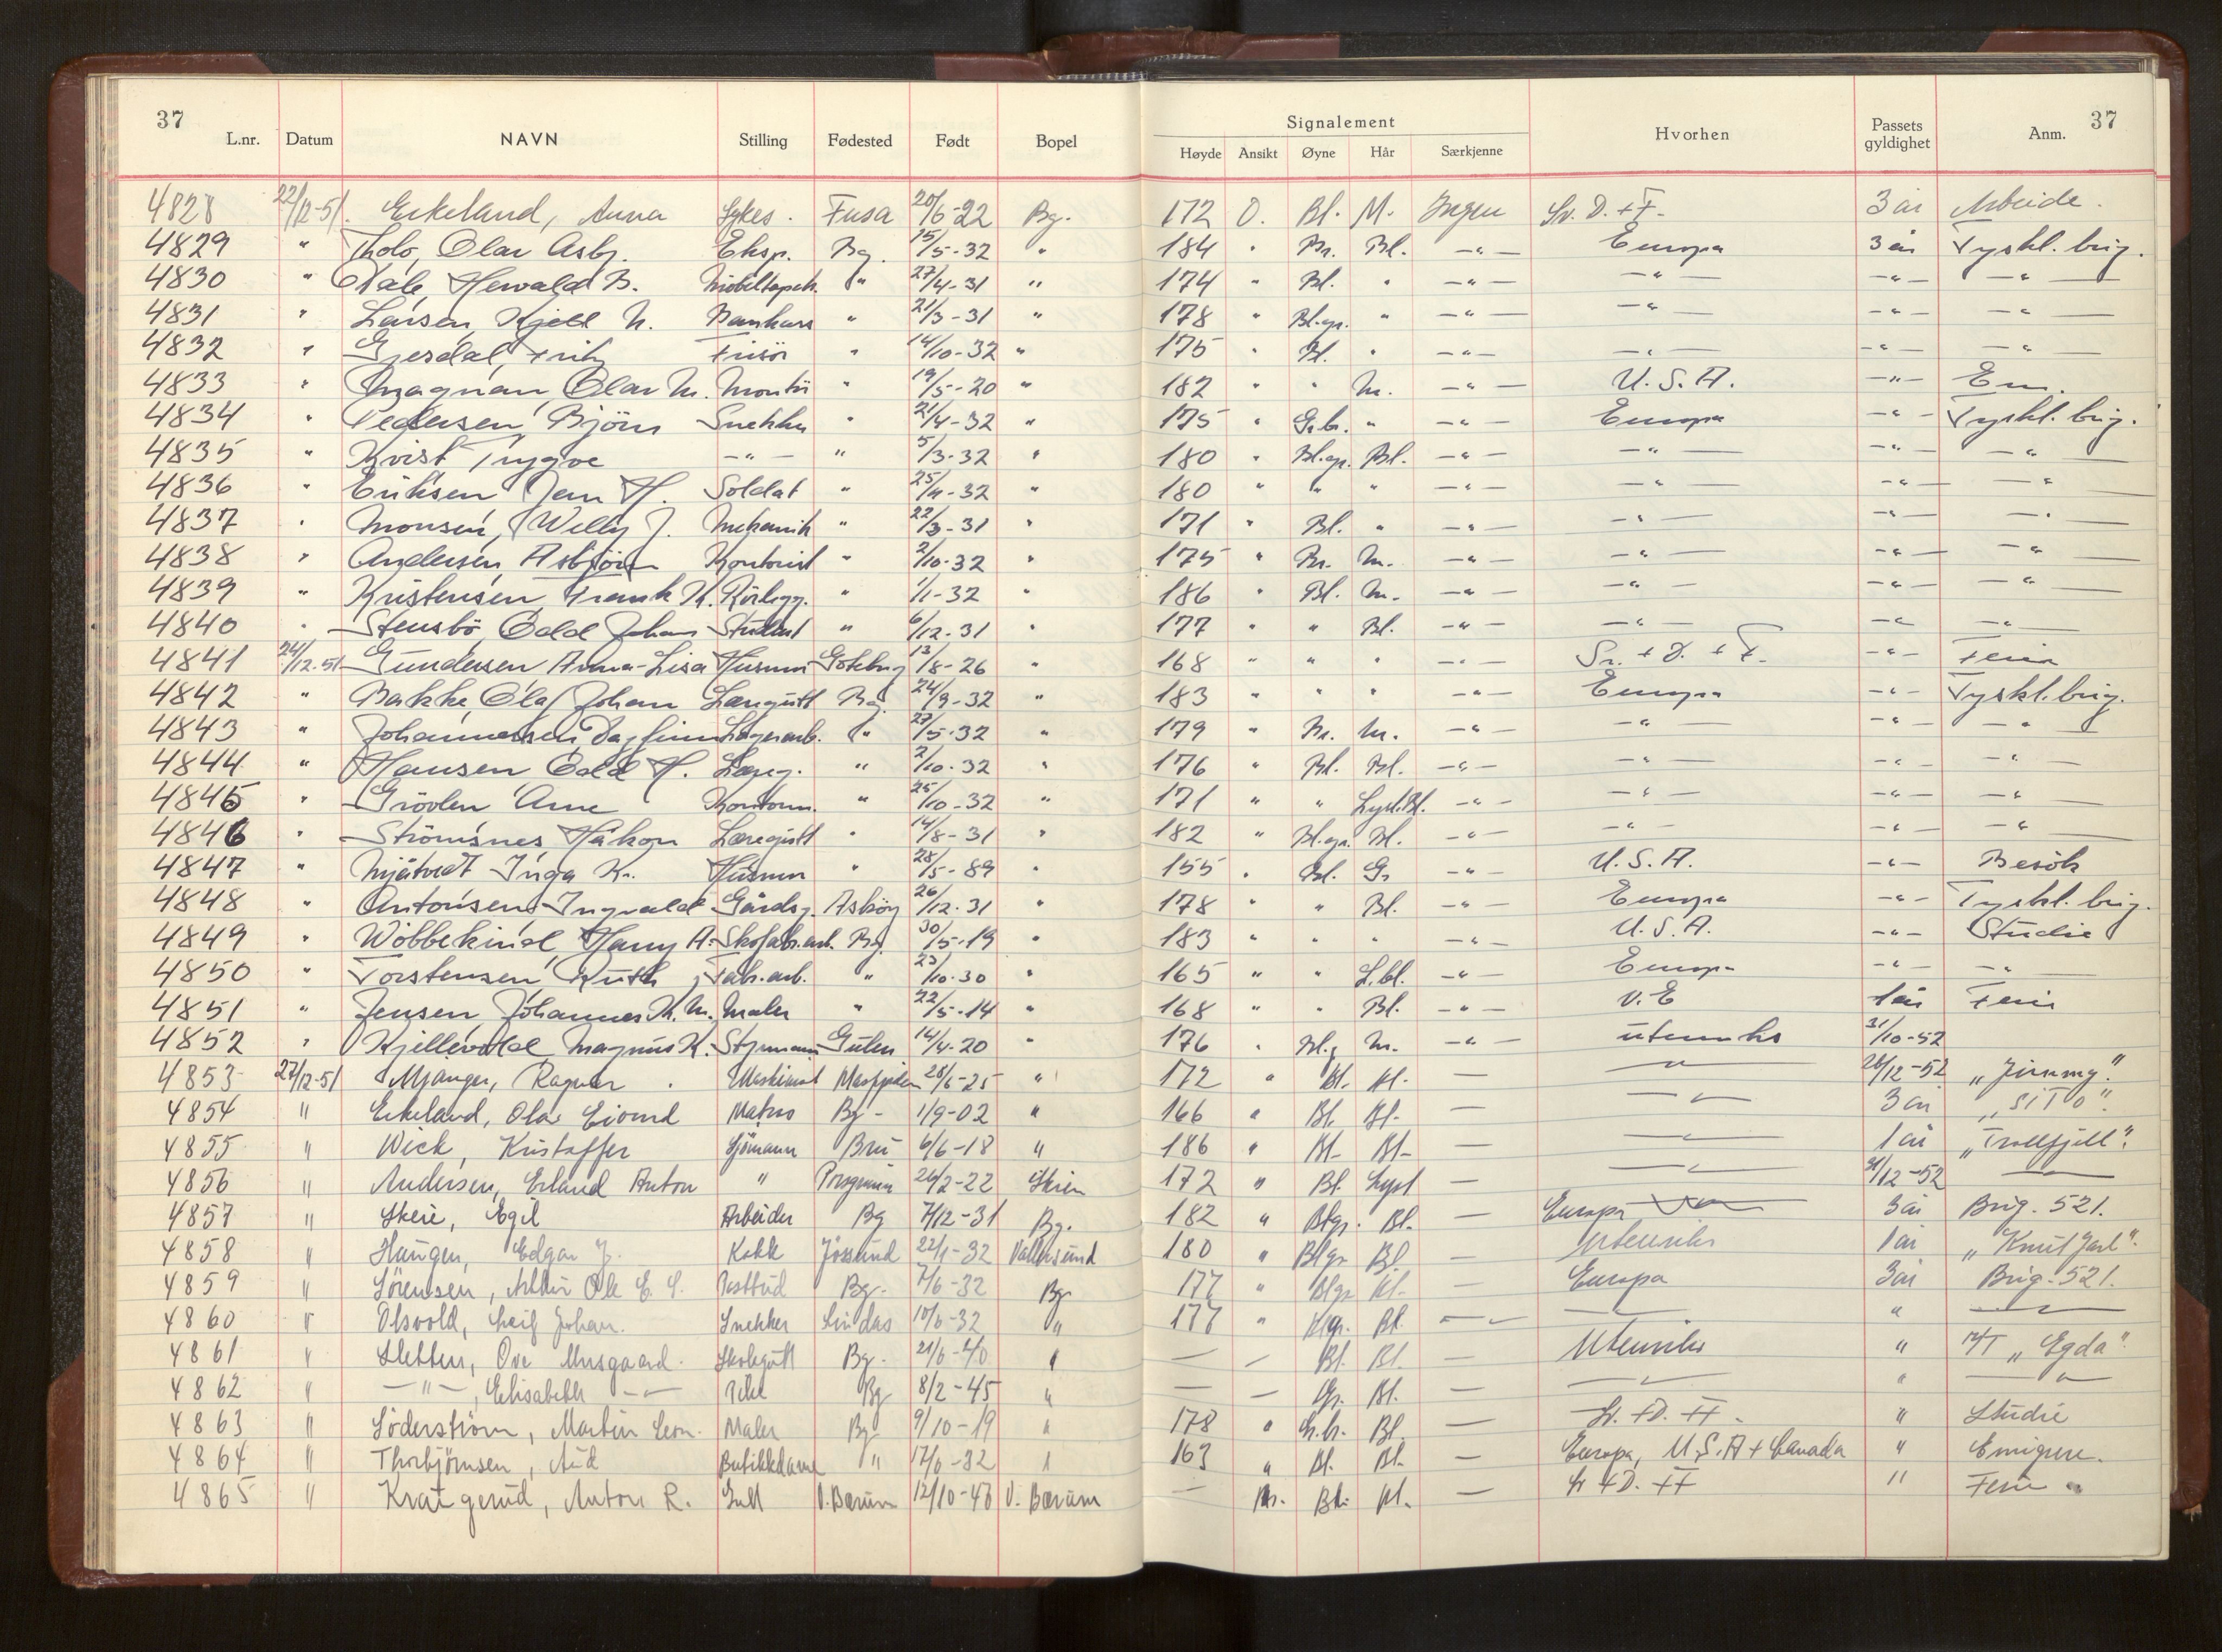 37 37
L.nr. Datum NAVN Stilling Fødested Født Bopel Signalement Hvorhen Passets gyldighet Anm.
Høyde Ansikt Øyne Hår Særkjenne
4828 22/12-51. Eikeland, Anna Sykes. Fusa 20/6-22 Bg. 172 O. Bl. M. Ingen Sv. D. + F. 3 år Arbeide.
4829 " Tholo, Olav Asbj. Eksp. Bg. 15/5-32 " 184 " Br. Bl. -"- Europa 3 år Tyskl. brig.
4830 " Dale Hervald B. Möbeltapets. " 27/4-31 " 174 " Bl. " -"- -"- -"- -"-
4831 " Larsen, Kjell N. " 21/3-31 " 178 " Bl.gr. " -"- -"- -"- -"-
4832 " Gjesdal, Frisör " 14/10-32 " 175 " Bl. " -"- -"- -"- -"-
4833 " Magnan, Olav M. Montör " 19/5-20 " 182 " " M. -"- U.S.A. -"- Em.
4834 " Pedersen Bjørn Snekker " 21/4-32 " 175 " Gr.br. " -"- Europa -"- Tyskl. brig.
4835 " Kvist Trygve -"- " 5/3-32 " 180 " Bl.gr. Bl. -"- -"- -"- -"-
4836 " Eriksen Jan H. Soldat " 25/4-32 " 180 " " " -"- -"- -"- -"-
4837 " Monsen, Willy J. Mekanik " 22/3-31 " 171 " Bl. " -"- -"- -"- -"-
4838 " Andersen Asbjörn Kontorist " 2/10-32 " 175 " Br. M. -"- -"- -"- -"-
4839 " Kristensen Frank K. Rörlegg. " 1/1-32 " 186 " Bl. M. -"- -"- -"- -"-
4840 " Stensbö, Odd Johan Student " 6/12-31 " 177 " " Bl. -"- -"- -"- -"-
4841 24/12-51 Gundersen Anna-Lisa Husmor Göteborg 13/8-26 " 168 " " " -"- Sv. + D. + F. -"- Ferie
4842 " Bakke, Olaf Johan Læregutt Bg. 24/9-32 " 183 " " " -"- Europa -"- Tyskl. brig.
4843 " Johannessen, Dagfinn Lagerarb. " 27/5-32 " 179 " Br. M. -"- -"- -"- -"-
4844 " Hansen Odd H. Læreg. " 2/10-32 " 176 " Bl. Bl. -"- -"- -"- -"-
4845 " Grövlen Arne Kontorm. " 25/10-32 " 171 " " Lys.Bl. -"- -"- -"- -"-
4846 " Strömsnes, Håkon Læregutt " 14/8-31 " 182 " Bl.gr. Bl. -"- -"- -"- -"-
4847 " Mjåtvedt Inga K. Husmor " 28/5-89 " 155 " Bl. Gr. -"- U.S.A. -"- Besök
4848 " Antonsen Ingvald Gårdsg. Asköy 26/12-31 " 178 " " Bl. -"- Europa -"- Tyskl. brig.
4849 " Wöbbekind, Harry A. Skofabr.arb. Bg. 30/5-19 " 183 " " " -"- U.S.A. -"- Studie
4850 " Torstensen, Ruth Fabr.arb. " 23/10-30 " 165 " " L.bl. -"- Europa -"- -"-
4851 " Jensen, Johannes K. M. Maler " 22/5-14 " 168 " " Bl. -"- V.E 1 år Ferie
4852 " Kjellevold, Magnus K. Styrmann Gulen 14/4-20 " 176 " Bl.g M. -"- utenriks 31/10-52
4853 27/12-51 Mjanger, Ragnar Maskinist Masfjorden 28/6-25 " 172 " Bl. Bl. — -"- 28/12-52 "Jimmy".
4854 " Eikeland, Olav Eivind Matros Bg- 1/9-02 " 166 " Bl. Bl. — -"- 3 år "SITO".
4855 " Wick, Kristoffer Sjömann Bru 6/6-18 " 186 " Bl- Bl- — -"- 1 år "Trollfjell".
4856 " Andersen, Erland Anton " Porsgrunn 26/2-22 Skien 172 " Bl. Lyst — -"- 31/12-52 —
4857 " Skeie, Egil Arbeider Bg 7/12-31 Bg. 182 " Blgr. Bl. — Europa 3 år Brig. 521.
4858 " Haugen, Edgar J. Kokk Jössund 22/1-32 Vallersund 180 " Blgr Bl. — Utenriks 1 år "Knut Jarl".
4859 " Sörensen, Ole E. S. Postbud Bg. 7/6-32 Bg 177 " Blgr Bl. — Europa 3 år Brig. 521.
4860 " Olsvold, Leif Johan. Snekker Lindås 10/6-32 " 177 " Blgr. Bl. -"- -"- " -"-
4861 " Sletten, Ove Musgaard. Skolegutt Bg. 21/6-40 " — — Bl. Bl. — Utenriks " M/T "Egda"
4862 " -"-, Elisabeth -"- Bg 8/2-45 " — — Gr. Bl. — -"- " -"-
4863 " Söderström, Martin Leon. Maler Bg. 9/10-19 " 178 " Gr.br. Bl. — Sv. + D. + F. " Studie
4864 " Thorbjörnsen, Aud Butikkdame " 17/6-32 " 163 " Bl. Bl. — Europa, U.S.A + Canada " Emigrere.
4865 " Kraugerud, Anton R. Gutt V. Bærum 12/10-48 V. Bærum — Br. Bl. Bl. — Sv + D. + F " Ferie